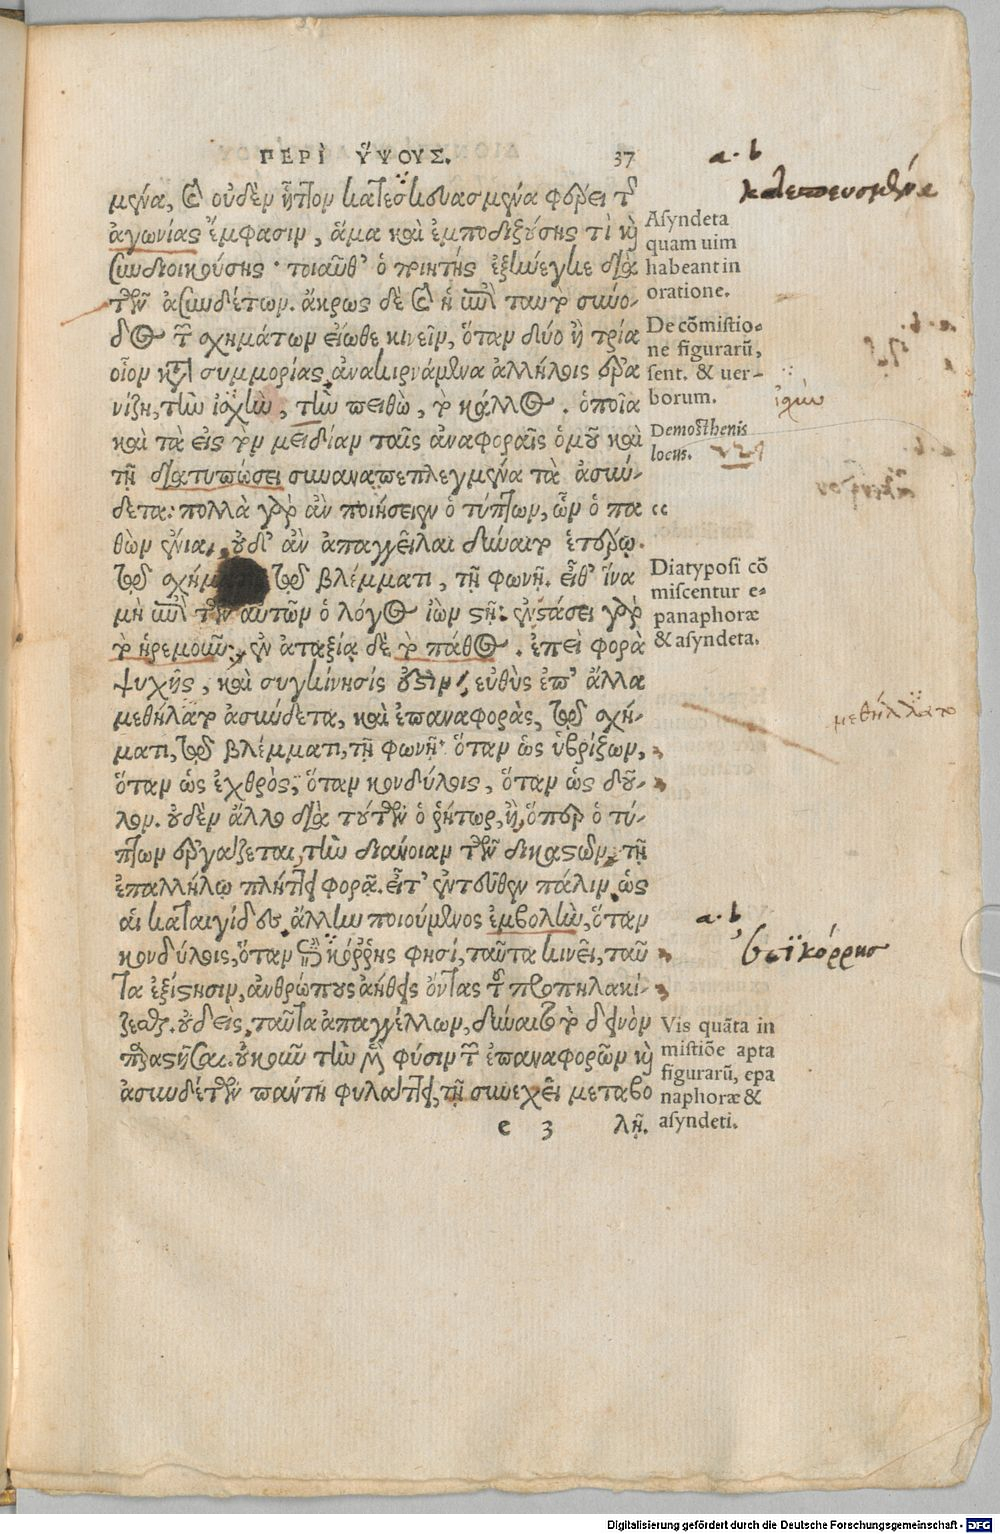 ΠΕΡῚ ὝΨΟΥΣ. 37
μένα, καὶ οὐδὲν ἧττον κατεσκευασμένα φέρει τῆς
ἀγωνίας ἔμφασιν, ἅμα καὶ ἐμποδιζούσης τὶ καὶ
συνδιοικούσης· τοιαῦθ' ὁ ποιητὴς ἐξήνεγκε διὰ
τῶν ἀσυνδέτων. ἄκρως δὲ καὶ ἡ ἐπὶ ταυτὸ σύνο-
δος τῶν σχημάτων εἴωθε κινεῖν, ὅταν δύο ἢ τρία
οἷον κατὰ συμμορίας ἀνακιρνάμενα ἀλλήλοις ἐρα
νίζῃ, τὴν ἰσχὺν, τὴν πειθὼ, τὸ κάλλος. ὁποῖα
καὶ τὰ εἰς τὸν μειδίαν ταῖς ἀναφοραῖς ὁμοῦ καὶ
τῇ διατυπώσει συναναπεπλεγμένα τὰ ἀσύν-
δετα: πολλὰ γὰρ ἂν ποιήσειεν ὁ τύπτων, ὧν ὁ πα
θὼν ἔνια, οὐδ' ἂν ἀπαγγεῖλαι δύναιτο ἑτέρῳ.
τῷ σχήματι, τῷ βλέμματι, τῇ φωνῇ. εἶθ' ἵνα
μὴ ἐπὶ τῶν αὐτῶν ὁ λόγος ἰὼν στῇ· ἐν στάσει γὰρ
τὸ ἠρεμοῦν, ἐν ἀταξίᾳ δὲ τὸ πάθος. ἐπεὶ φορὰ
ψυχῆς, καὶ συγκίνησίς ἐστιν, εὐθὺς ἐπ' ἄλλα
μεθήλατο ἀσύνδετα, καὶ ἐπαναφορὰς, τῷ σχή-
ματι, τῷ βλέμματι, τῇ φωνῇ· ὅταν ὡς ὑβρίζων,
ὅταν ὡς ἐχθρὸς, ὅταν κονδύλοις, ὅταν ὡς δοῦ-
λον. οὐδὲν ἄλλο διὰ τούτων ὁ ῥήτωρ, ἢ, ὅπερ ὁ τύ-
πτων ἐργάζεται, τὴν διάνοιαν τῶν δικαστῶν τῇ
ἐπαλλήλῳ πλήττει φορᾷ. εἶτ' ἐντεῦθεν πάλιν ὡς
αἱ καταιγίδες, ἄλλην ποιούμενος ἐμβολὴν, ὅταν
κονδύλοις, ὅταν ἐπὶ κόῤῥης φησὶ, ταῦτα κινεῖ, ταῦ
τα ἐξίστησιν, ἀνθρώπους ἀήθεις ὄντας τοῦ προπηλακί-
ζεσθαι. οὐδεὶς ταῦτα ἀπαγγέλλων, δύναιτο τὸ δεινὸν
παραστῆσαι. οὐκοῦν τὴν μὲν φύσιν τῶν ἐπαναφορῶν καὶ
ἀσυνδέτων παντη φυλάττει, τῇ συνεχεῖ μεταβο
e 3 λῇ.
Asyndeta
quam uim
habeant in
oratione.
De cõmistio-
ne figurarũ,
sent. & uer-
borum.
Demosthenis
locus.
Diatyposi cõ
miscentur e-
panaphoræ
& asyndeta.
Vis quãta in
mistiõe apta
figurarũ, epa
naphoræ &
asyndeti.
a. b
ἰσχὺν
μεθήλλατο
a. b
ἐπὶ κόρρης
Digitalisierung gefördert durch die Deutsche Forschungsgemeinschaft - DFG